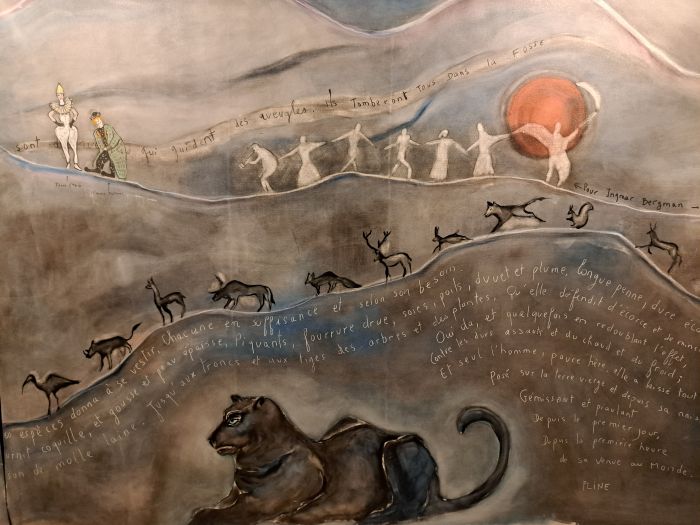 sont qui guident des aveugles. Ils Tomberont tous dans la Fosse
Pour Ingmar Bergman -
so espèces donna à se vestir, Chacune en suffisance et selon son besoin.
urnit coquille, et gousse et peau épaisse, Piquants, fourrure drue, soies, poils, duvet et plume, longue penne, dure éc
son de molle laine. Jusqu'aux troncs et aux tiges des arbres et des plantes. Qu'elle défendit d'écorce et de mani
Oui da, et quelquefois en redoublant l'effet,
Contre les durs assauts et du chaud et du froid;
Et seul l'homme, pauvre hère, elle a laissé tout
Posé sur la terre vierge et depuis sa nais
Gémissant et piaulant
Depuis le premier jour,
Depuis la première heure
de sa venue au Monde.
PLINE